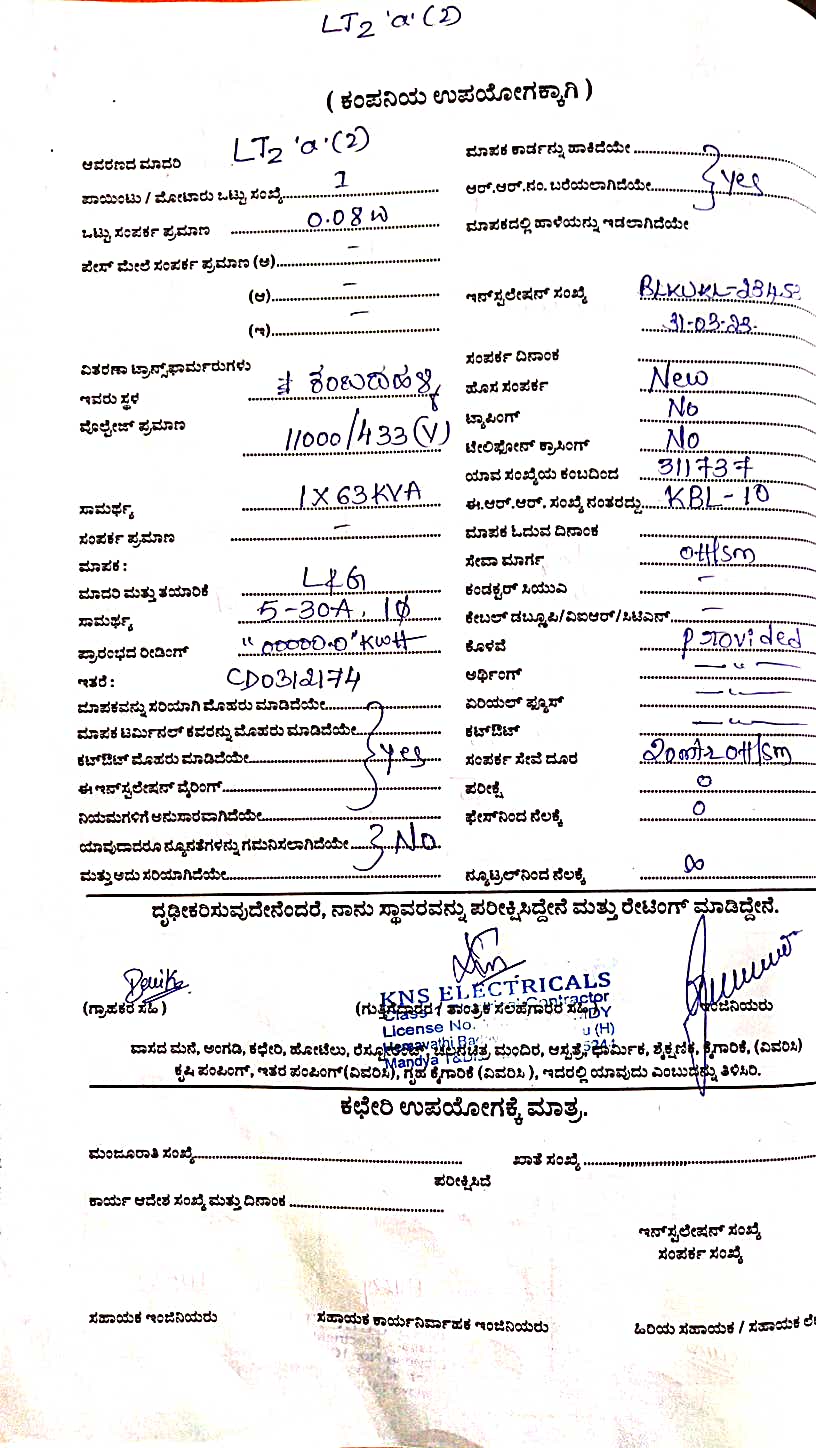 LT2 'a' (2)
( ಕಂಪನಿಯ ಉಪಯೋಗಕ್ಕಾಗಿ )
ಆವರಣದ ಮಾದರಿ LT2 'a' (2)
ಮಾಪಕ ಕಾರ್ಡನ್ನು ಹಾಕಿದೆಯೇ
ಪಾಯಿಂಟು / ಮೋಟಾರು ಒಟ್ಟು ಸಂಖ್ಯೆ 1
ಆರ್.ಆರ್.ನಂ. ಬರೆಯಲಾಗಿದೆಯೇ Yes
ಒಟ್ಟು ಸಂಪರ್ಕ ಪ್ರಮಾಣ 0.08
ಮಾಪಕದಲ್ಲಿ ಹಾಳೆಯನ್ನು ಇಡಲಾಗಿದೆಯೇ
ಫೇಸ್ ಮೇಲೆ ಸಂಪರ್ಕ ಪ್ರಮಾಣ (ಅ) –
(ಆ) –
ಇನ್‌ಸ್ಟಲೇಷನ್ ಸಂಖ್ಯೆ BLKUKL-2345
(ಇ) –
31-03-23.
ವಿತರಣಾ ಟ್ರಾನ್ಸ್‌ಫಾರ್ಮರುಗಳು
ಸಂಪರ್ಕ ದಿನಾಂಕ
ಇವರು ಸ್ಥಳ ಕಂಬದಹಳ್ಳಿ
ಹೊಸ ಸಂಪರ್ಕ New
ವೊಲ್ಟೇಜ್ ಪ್ರಮಾಣ 11000/433 (V)
ಟ್ಯಾಪಿಂಗ್ No
ಟೇಲಿಫೋನ್ ಕ್ರಾಸಿಂಗ್ No
ಯಾವ ಸಂಖ್ಯೆಯ ಕಂಬದಿಂದ 311737
ಸಾಮರ್ಥ್ಯ 1 X 63 KVA
ಈ.ಆರ್.ಆರ್. ಸಂಖ್ಯೆ ನಂತರದ್ದು KBL-10
ಸಂಪರ್ಕ ಪ್ರಮಾಣ –
ಮಾಪಕ ಓದುವ ದಿನಾಂಕ
ಮಾಪಕ :
ಸೇವಾ ಮಾರ್ಗ OH/Sm
ಮಾದರಿ ಮತ್ತು ತಯಾರಿಕೆ L&G
ಕಂಡಕ್ಟರ್ ಸಿಯುವಿ –
ಸಾಮರ್ಥ್ಯ 5-30A, 1φ
ಕೇಬಲ್ ಡಬ್ಲೂಪಿ/ವಿಐಆರ್/ಸಿಟಿಎಸ್ –
ಪ್ರಾರಂಭದ ರೀಡಿಂಗ್ "00000.0" KWH
ಕೊಳವೆ Provided
ಇತರೆ : CD0312174
ಅರ್ಥಿಂಗ್ –〃–
ಮಾಪಕವನ್ನು ಸರಿಯಾಗಿ ಮೊಹರು ಮಾಡಿದೆಯೇ
ಏರಿಯಲ್ ಫ್ಯೂಸ್ –〃–
ಮಾಪಕ ಟರ್ಮಿನಲ್ ಕವರನ್ನು ಮೊಹರು ಮಾಡಿದೆಯೇ
ಕಟ್‌ಔಟ್ –〃–
ಕಟ್‌ಔಟ್ ಮೊಹರು ಮಾಡಿದೆಯೇ Yes
ಸಂಪರ್ಕ ಸೇವೆ ದೂರ 20mtr OH/Sm
ಈ ಇನ್‌ಸ್ಟಲೇಷನ್ ವೈರಿಂಗ್
ಪರೀಕ್ಷೆ 0
ನಿಯಮಗಳಿಗೆ ಅನುಸಾರವಾಗಿದೆಯೇ
ಫೇಸ್‌ನಿಂದ ನೆಲಕ್ಕೆ 0
ಯಾವುದಾದರೂ ನ್ಯೂನತೆಗಳನ್ನು ಗಮನಿಸಲಾಗಿದೆಯೇ No
ಮತ್ತು ಅದು ಸರಿಯಾಗಿದೆಯೇ
ನ್ಯೂಟ್ರಲ್‌ನಿಂದ ನೆಲಕ್ಕೆ ∞
ದೃಢೀಕರಿಸುವುದೇನೆಂದರೆ, ನಾನು ಸ್ಥಾವರವನ್ನು ಪರೀಕ್ಷಿಸಿದ್ದೇನೆ ಮತ್ತು ರೇಟಿಂಗ್ ಮಾಡಿದ್ದೇನೆ.
KNS ELECTRICALS
(ಗ್ರಾಹಕರ ಸಹಿ )
(ಗುತ್ತಿಗೆದಾರರ / ತಾಂತ್ರಿಕ ಸಲಹೆಗಾರರ ಸಹಿ)
ಇಂಜಿನಿಯರು
Class Contractor
License No.
ವಾಸದ ಮನೆ, ಅಂಗಡಿ, ಕಛೇರಿ, ಹೋಟೆಲು, ರೆಸ್ಟೋರೆಂಟ್, ಚಲನಚಿತ್ರ, ಮಂದಿರ, ಆಸ್ಪತ್ರೆ, ಧಾರ್ಮಿಕ, ಶೈಕ್ಷಣಿಕ, ಕೈಗಾರಿಕೆ, (ವಿವರಿಸಿ)
Mandya
ಕೃಷಿ ಪಂಪಿಂಗ್, ಇತರ ಪಂಪಿಂಗ್ (ವಿವರಿಸಿ), ಗೃಹ ಕೈಗಾರಿಕೆ (ವಿವರಿಸಿ ), ಇದರಲ್ಲಿ ಯಾವುದು ಎಂಬುದನ್ನು ತಿಳಿಸಿರಿ.
ಕಛೇರಿ ಉಪಯೋಗಕ್ಕೆ ಮಾತ್ರ.
ಮಂಜೂರಾತಿ ಸಂಖ್ಯೆ
ಖಾತೆ ಸಂಖ್ಯೆ
ಪರೀಕ್ಷಿಸಿದೆ
ಕಾರ್ಯ ಆದೇಶ ಸಂಖ್ಯೆ ಮತ್ತು ದಿನಾಂಕ
ಇನ್‌ಸ್ಟಲೇಷನ್ ಸಂಖ್ಯೆ
ಸಂಪರ್ಕ ಸಂಖ್ಯೆ
ಸಹಾಯಕ ಇಂಜಿನಿಯರು
ಸಹಾಯಕ ಕಾರ್ಯನಿರ್ವಾಹಕ ಇಂಜಿನಿಯರು
ಹಿರಿಯ ಸಹಾಯಕ / ಸಹಾಯಕ